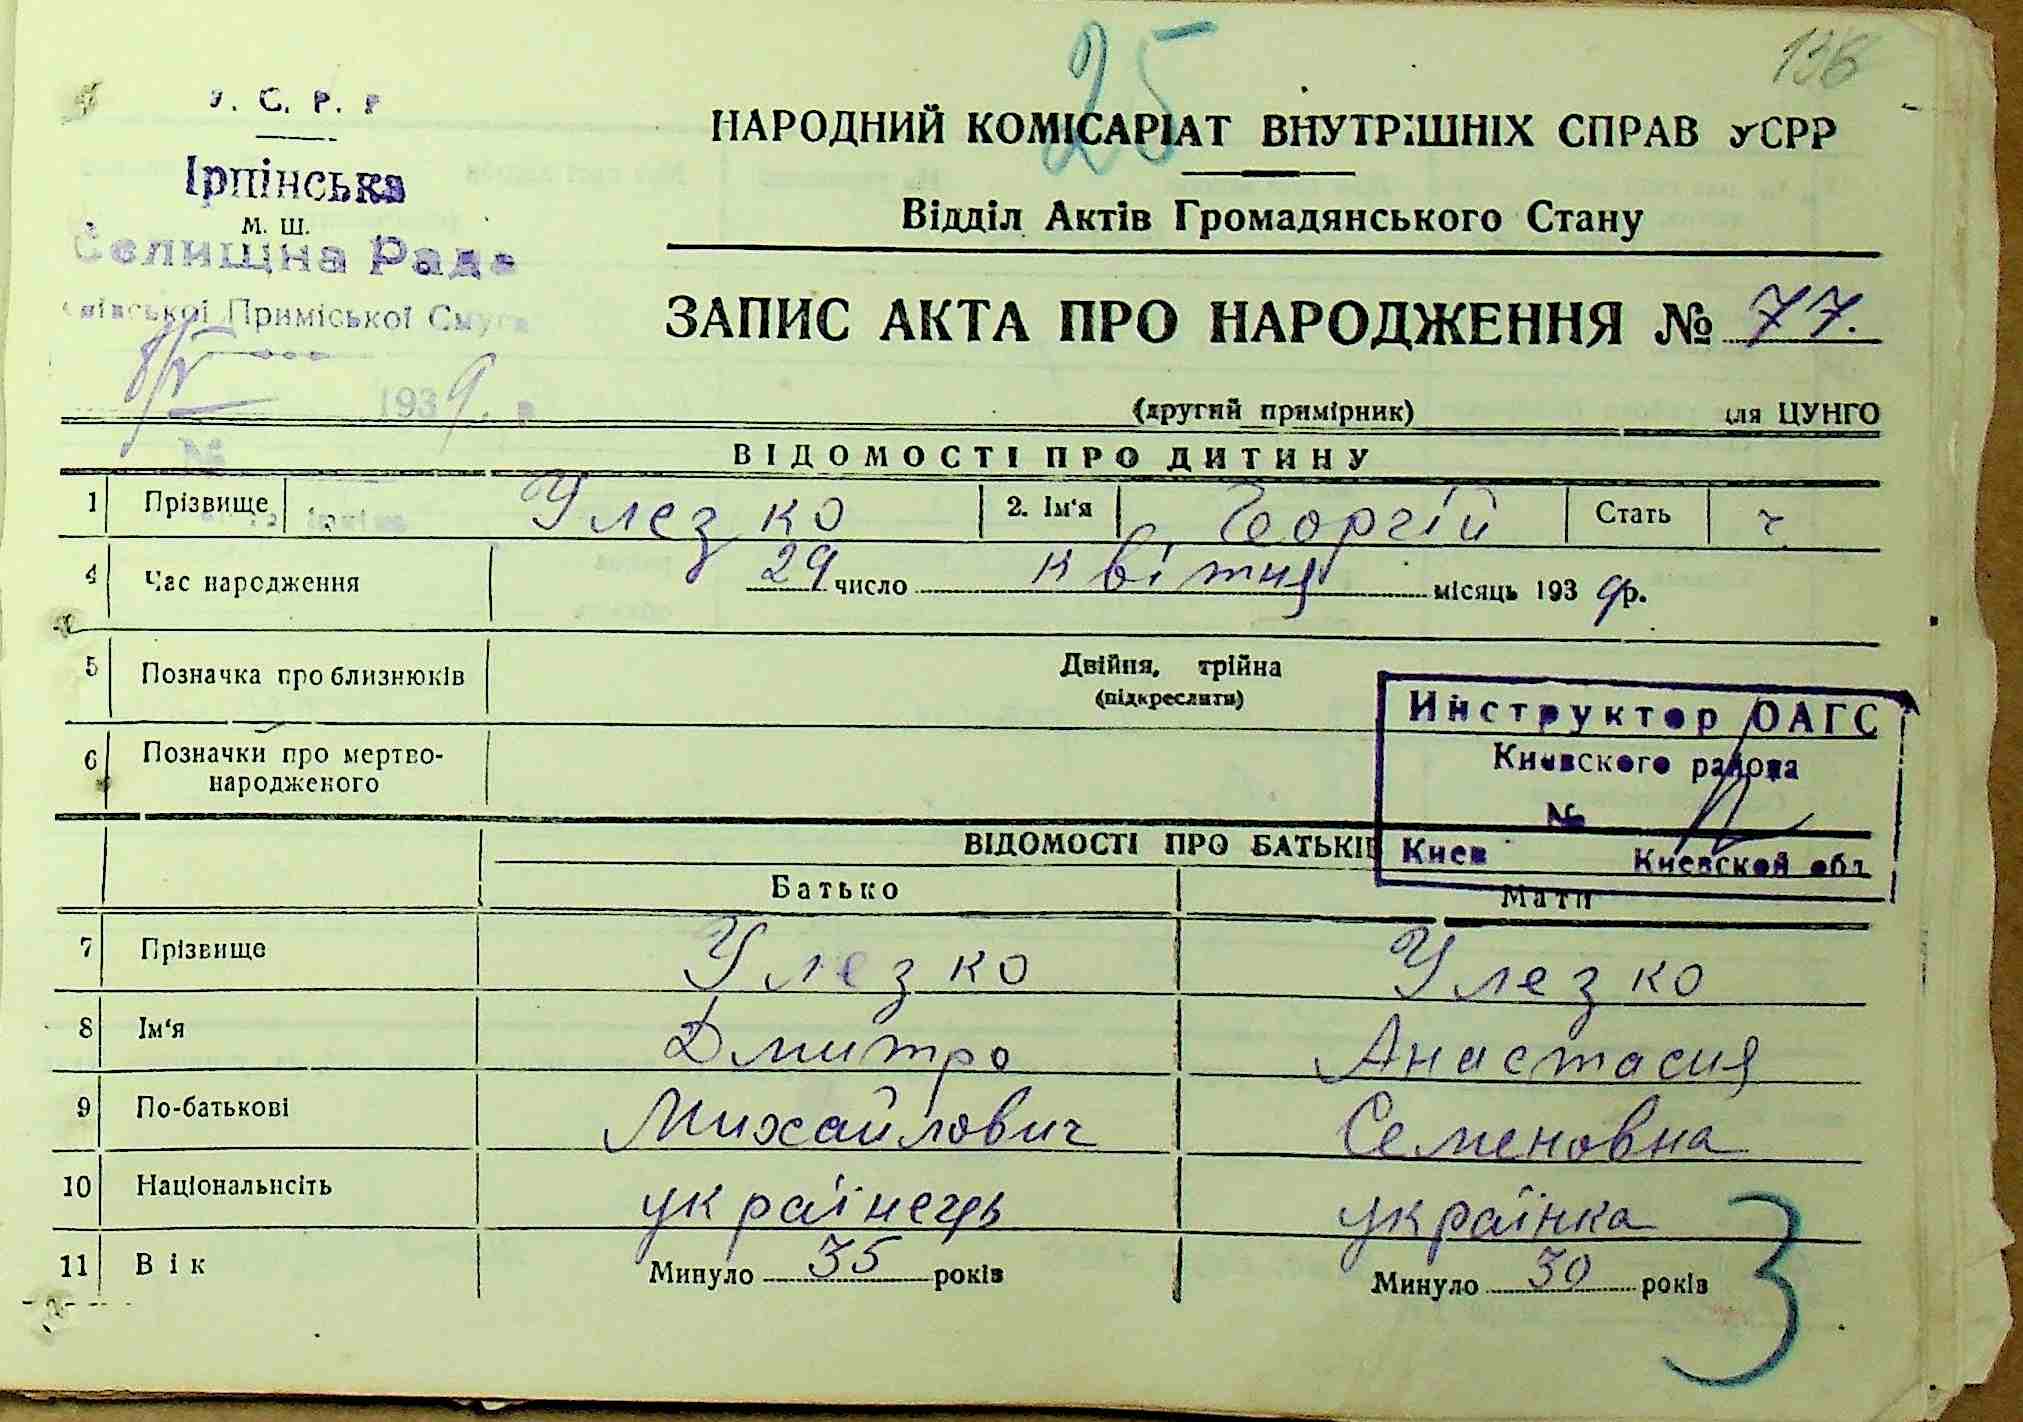 138
25
У. С. Р. Р
Ірпінська
м. ш.
Селищна Рада
Київської Приміської Смуги
8/V 1939 р
№
НАРОДНИЙ КОМІСАРІАТ ВНУТРІШНІХ СПРАВ УСРР
Відділ Актів Громадянського Стану
ЗАПИС АКТА ПРО НАРОДЖЕННЯ № 77.
(другий примірник) для ЦУНГО
ВІДОМОСТІ ПРО ДИТИНУ
1 Прізвище Улезко 2. Ім'я Георгій Стать ч
4 Час народження 29 число квітня місяць 1939 р.
5 Позначка про близнюків Двійня, трійна
(підкреслити)
6 Позначки про мертво-
народженого
Инструктор ОАГС
Киевского района
№
Киев Киевской обл
ВІДОМОСТІ ПРО БАТЬКІВ
Батько Мати
7 Прізвище Улезко Улезко
8 Ім'я Дмитро Анастасия
9 По-батькові Михайлович Семеновна
10 Національнсіть українець українка
11 Вік Минуло 35 років Минуло 30 років
3